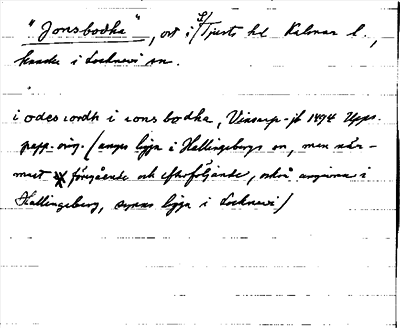 "Jonsbodha", ort i S/Tjusts hd Kalmar l.,
kanske i Locknevi sn.
i odes iordh i ions bodha, Vinsarp-jb 1494 Upps.
papp. orig. (anges ligga i Hallingebergs sn, men när-
mast föregående och efterföljande, också angivna i
Hallingeberg, synas ligga i Locknevi)